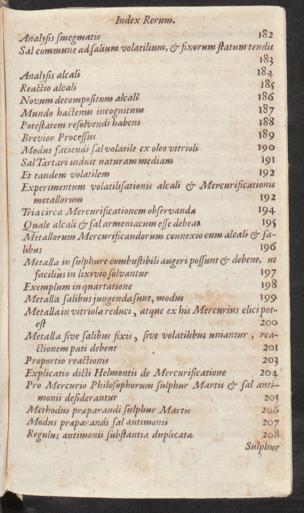 Index Rerum.
Analysis smegmatis 182
Sal commune ad salium volatilium, & fixorum statum tendit
183
Analysis alcali 184
Reactio alcali 185
Novum decompositum alcali 186
Mundo hactenus incognitum 187
Potestatem resolvendi habens 188
Brevior Processus 189
Modus faciendi sal volatile ex oleo vitrioli 190
Sal Tartari induit naturam mediam 191
Et tandem volatilem 192
Experimentum volatilisationis alcali & Mercurificationis
metallorum 192
Tria circa Mercurificationem observanda 194
Quale alcali & sal armeniacum esse debeat 195
Metallorum Mercurificandorum connexio cum alcali & sa-
libus 196
Metalla in sulphure combustibili augeri possunt & debent, ut
facilius in lixivio solvantur 197
Exemplum in quartatione 198
Metalla salibus jungenda sunt, modus 199
Metalla in vitriola reduci, atque ex his Mercurius elici pot-
est 200
Metalla sive salibus fixis, sive volatilibus uniantur, rea-
ctionem pati debent 201
Proportio reactionis 203
Explicatio dicti Helmontii de Mercurificatione 204
Pro Mercurio Philosophorum sulphur Martis & sal anti-
monii desiderantur 205
Methodus præparandi sulphur Martis 206
Modus præparandi sal antimonii 207
Regulus antimonii substantia duplicata 208
Sulphur